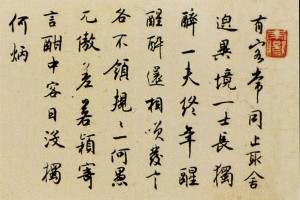 有客常同止取舍
邈異境一士長獨
醉一夫終年醒
醒醉還相咲發言
各不領規〻一何愚
兀傲差若穎寄
言酣中客日没獨
何炳